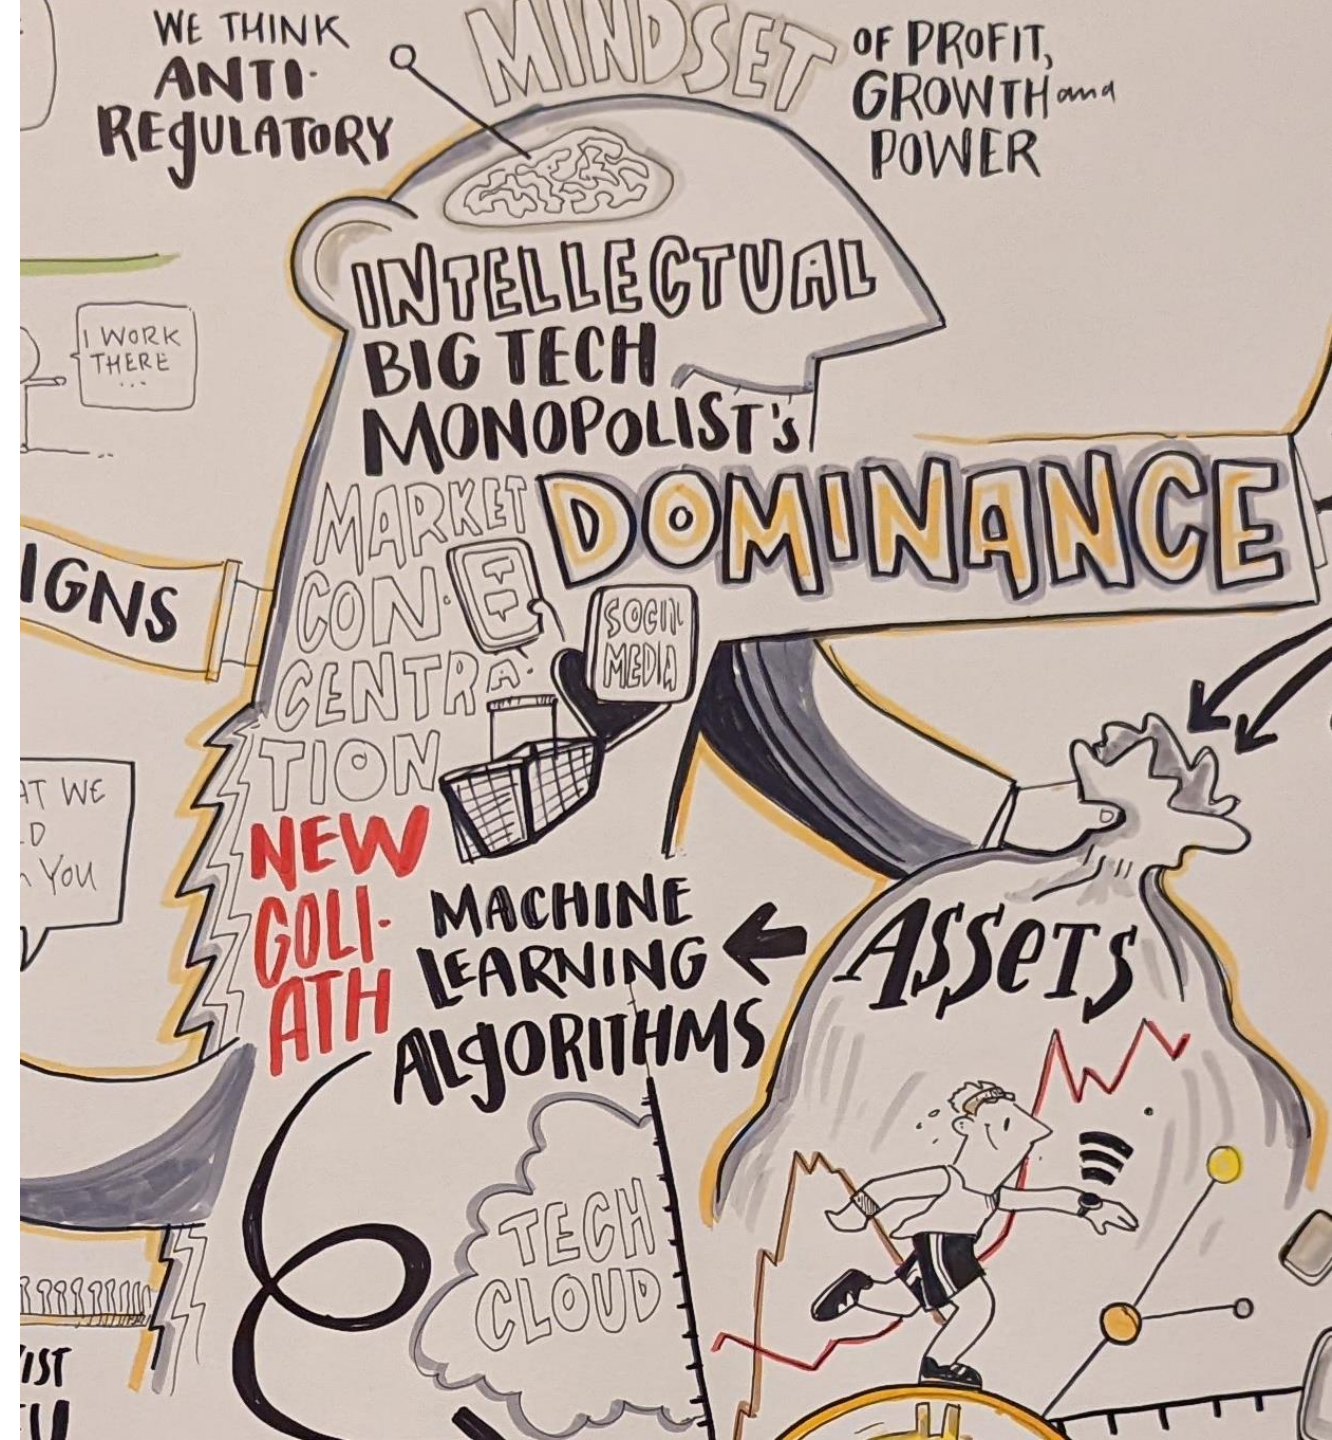 WE THINK
ANTI-
REGULATORY
MINDSET
OF PROFIT,
GROWTH and
POWER
INTELLECTUAL
BIG TECH
MONOPOLIST's
DOMINANCE
MARKET
CON-
CENTRA-
TION
SOCIAL
MEDIA
I WORK
THERE
...
IGNS
AT WE
D
YOU
NEW
GOLI-
ATH
MACHINE
LEARNING
ALGORITHMS
ASSETS
TECH
CLOUD
IST